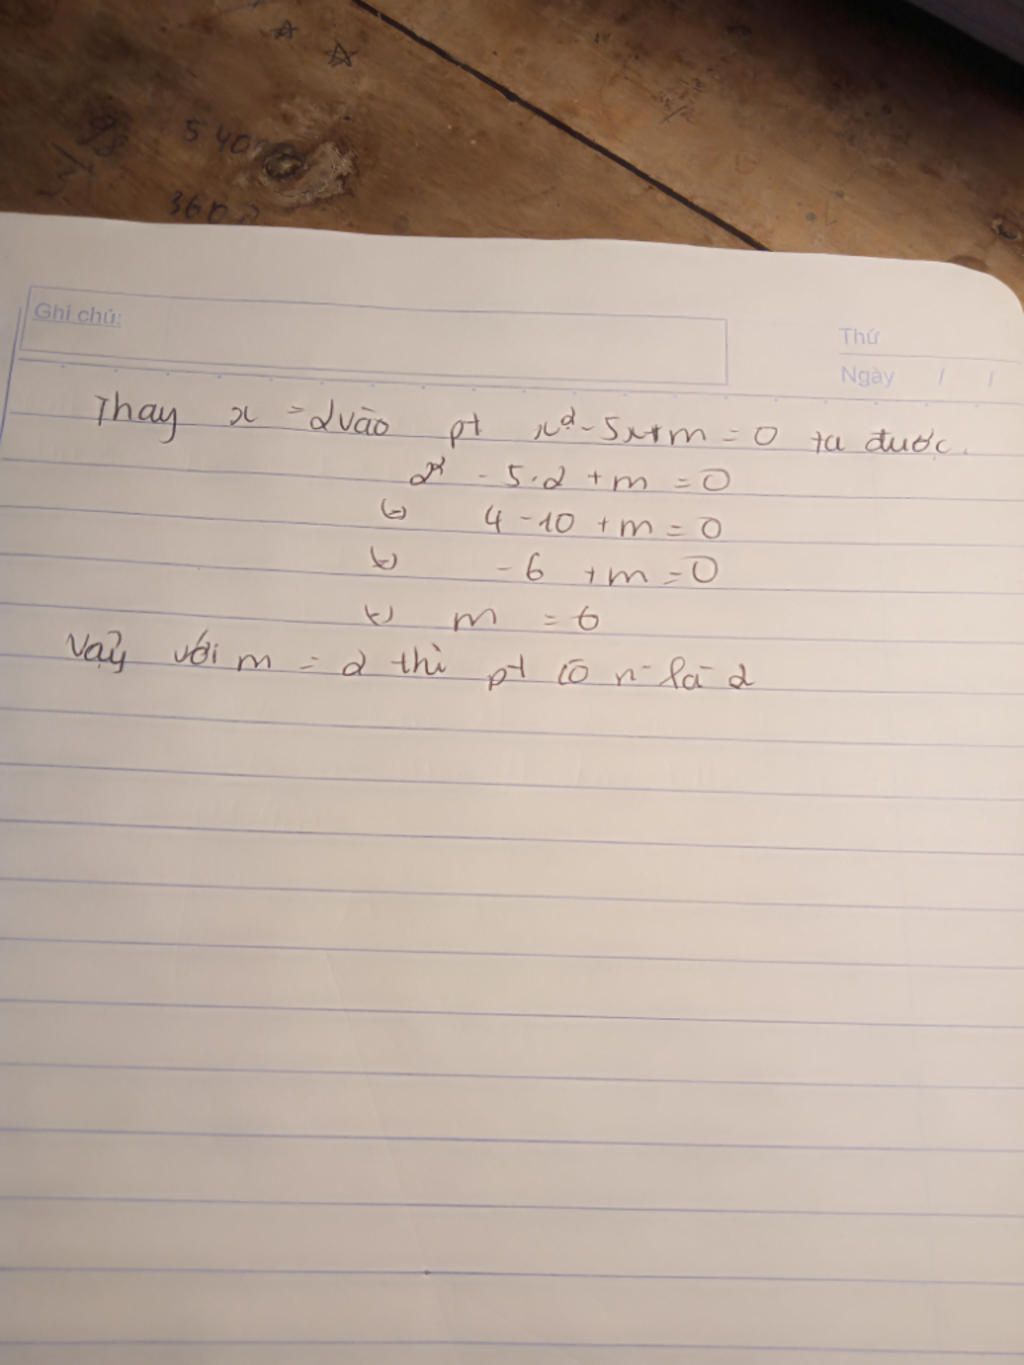 98 540
31 360
Ghi chú:
Thứ
Ngày / /
Thay x = 2 vào pt x² - 5x + m = 0 ta được.
2² - 5.2 + m = 0
(=) 4 - 10 + m = 0
(=) - 6 + m = 0
(=) m = 6
Vậy với m = 2 thì pt có n⁻ là 2